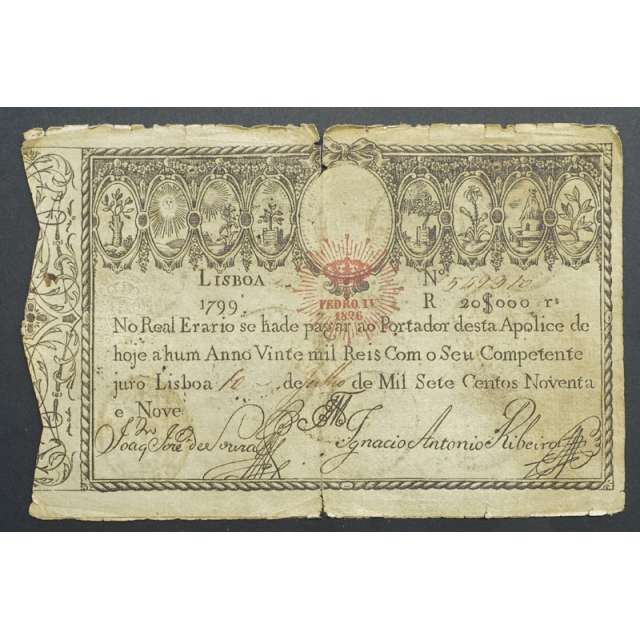 LISBOA
Nº
1799.
PEDRO. IV
1826
R 20$000 rˢ
No Real Erario se hade pagar ao Portador desta Apolice de
hoje a hum Anno Vinte mil Reis Com o Seu Competente
juro Lisboa 10 de Julho de Mil Sete Centos Noventa
e Nove
Joaqᵐ Joze de Souza
Ignacio Antonio Ribeiro